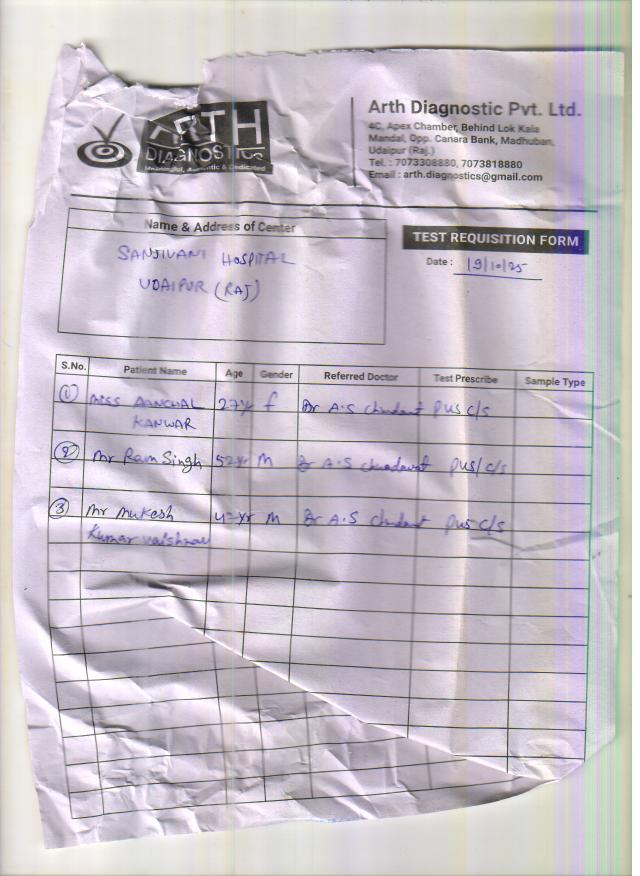 ARTH
DIAGNOSTICS
Meaningful, Authentic & Dedicated
Arth Diagnostic Pvt. Ltd.
4C, Apex Chamber, Behind Lok Kala
Mandal, Opp. Canara Bank, Madhuban,
Udaipur (Raj.)
Tel. : 7073308880, 7073818880
Email : arth.diagnostics@gmail.com
Name & Address of Center
SANJIVANI HOSPITAL
UDAIPUR (RAJ)
TEST REQUISITION FORM
Date : 19/10/25
S.No. Patient Name Age Gender Referred Doctor Test Prescribe Sample Type
① MISS AANCHAL 27yr f Dr A.S pus c/s
KANWAR
② Mr Ram Singh 52yr M Dr A.S chundawat pus/c/s
③ Mr Mukesh yr M Dr A.S pus c/s
Kumar vaishnav